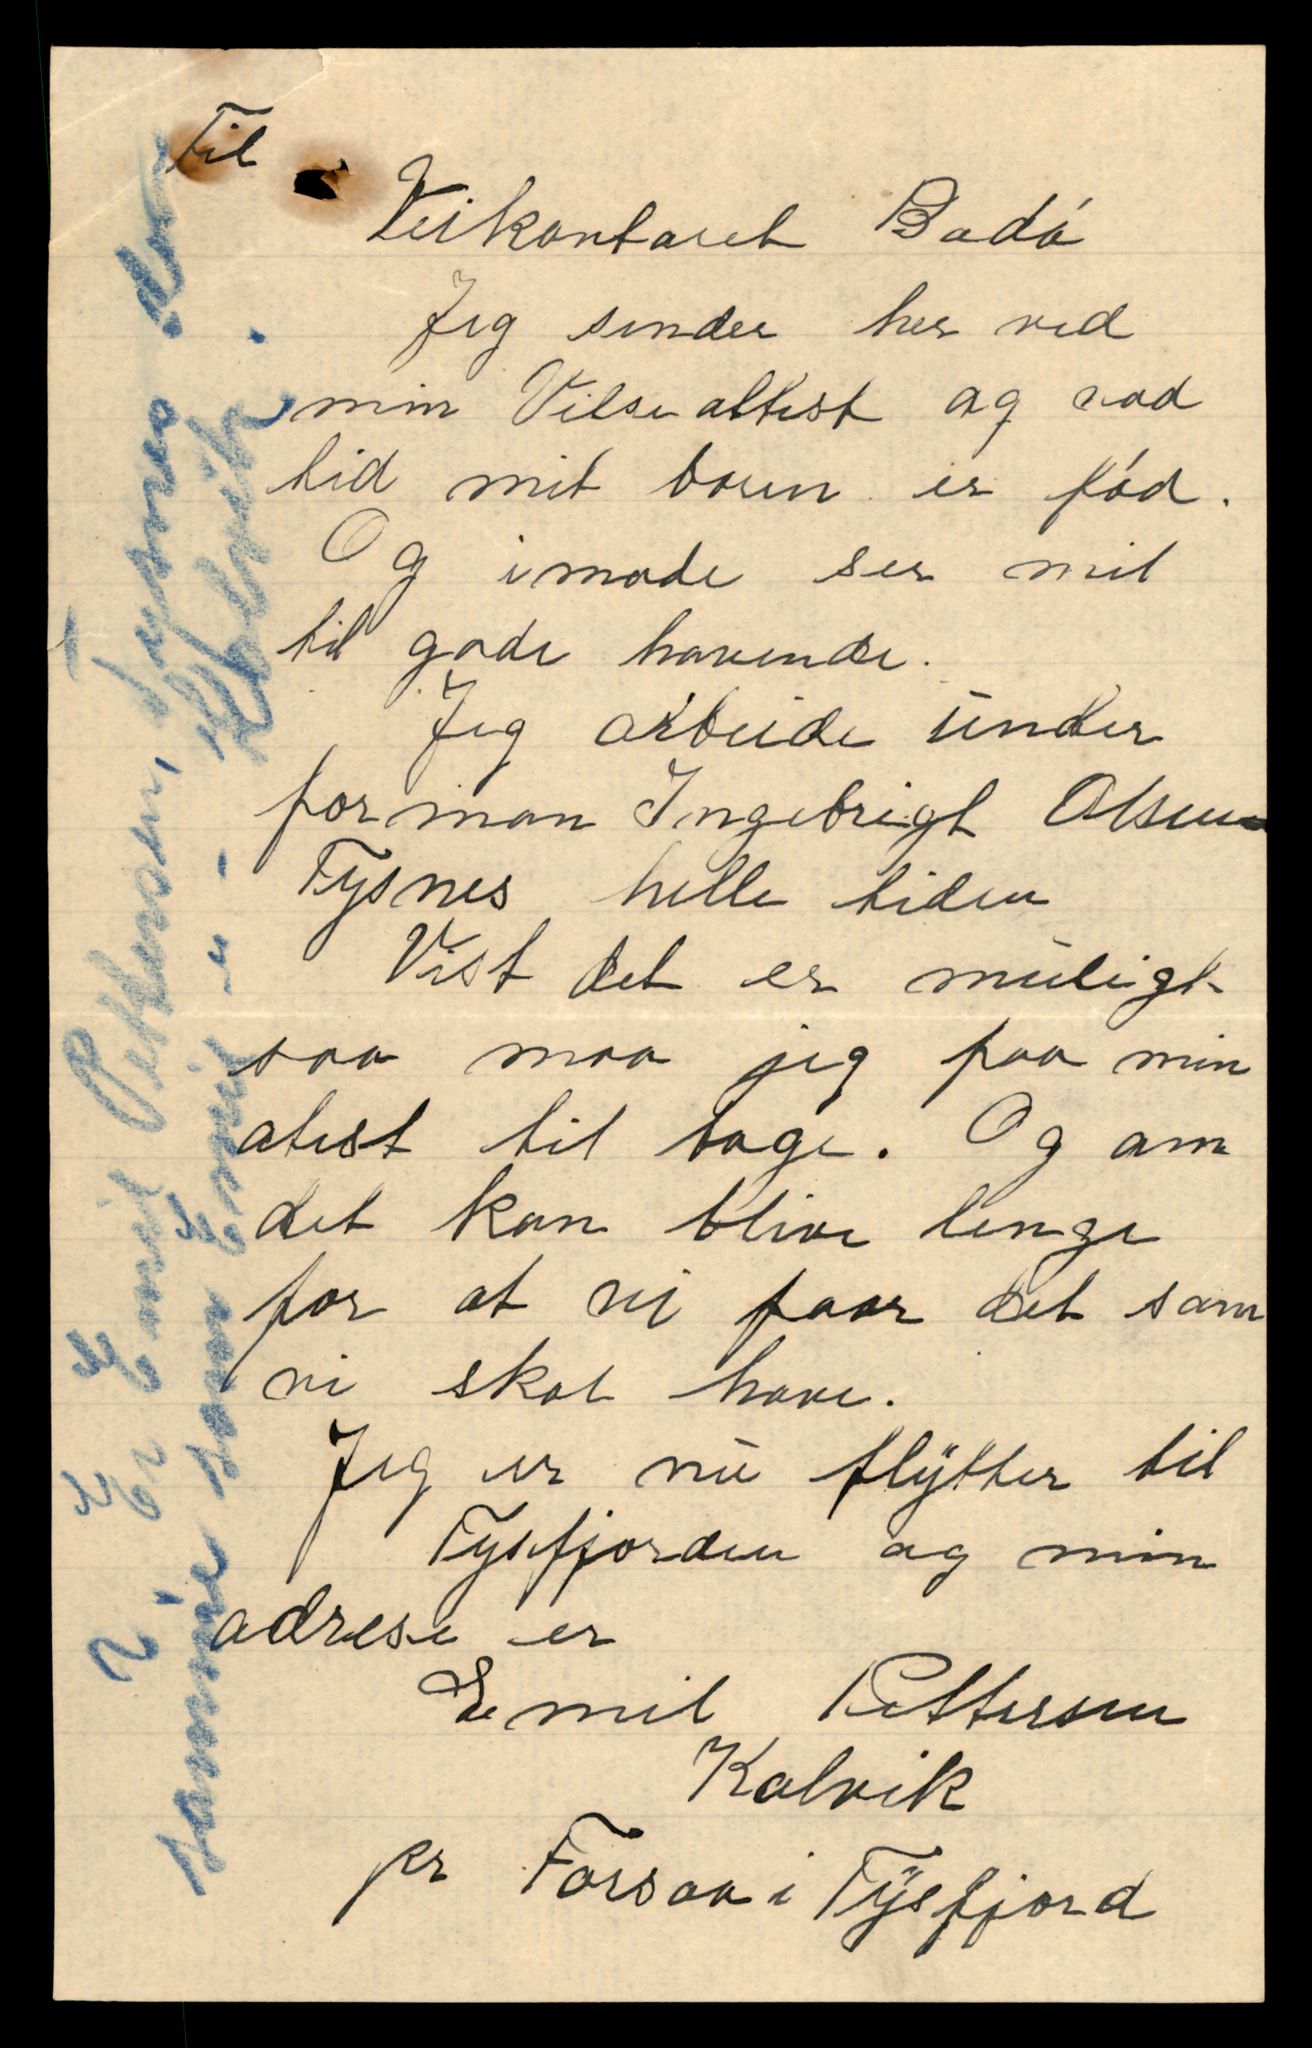 Til
Veikontoret Bodó
Jeg sender her ved
min Vilseattest og vad
tid mit boren er fód.
Og imode ser mit
til gode havende.
Jeg arbeide under
forman Ingebrigt Olsen
Tysnes helle tiden
Vist det er muligt
saa maa jeg faa min
atest til bage. Og om
det kan blive lenge
for at vi faar det som
vi skal have.
Jeg er nu flytter til
Tysfjorden og min
adrese er
Emil Pettersen
Kalvik
pr Forsaa i Tysfjord
2. Er Emil Pettersen, Tysnes den
samme som Emil -"- Kalvik.